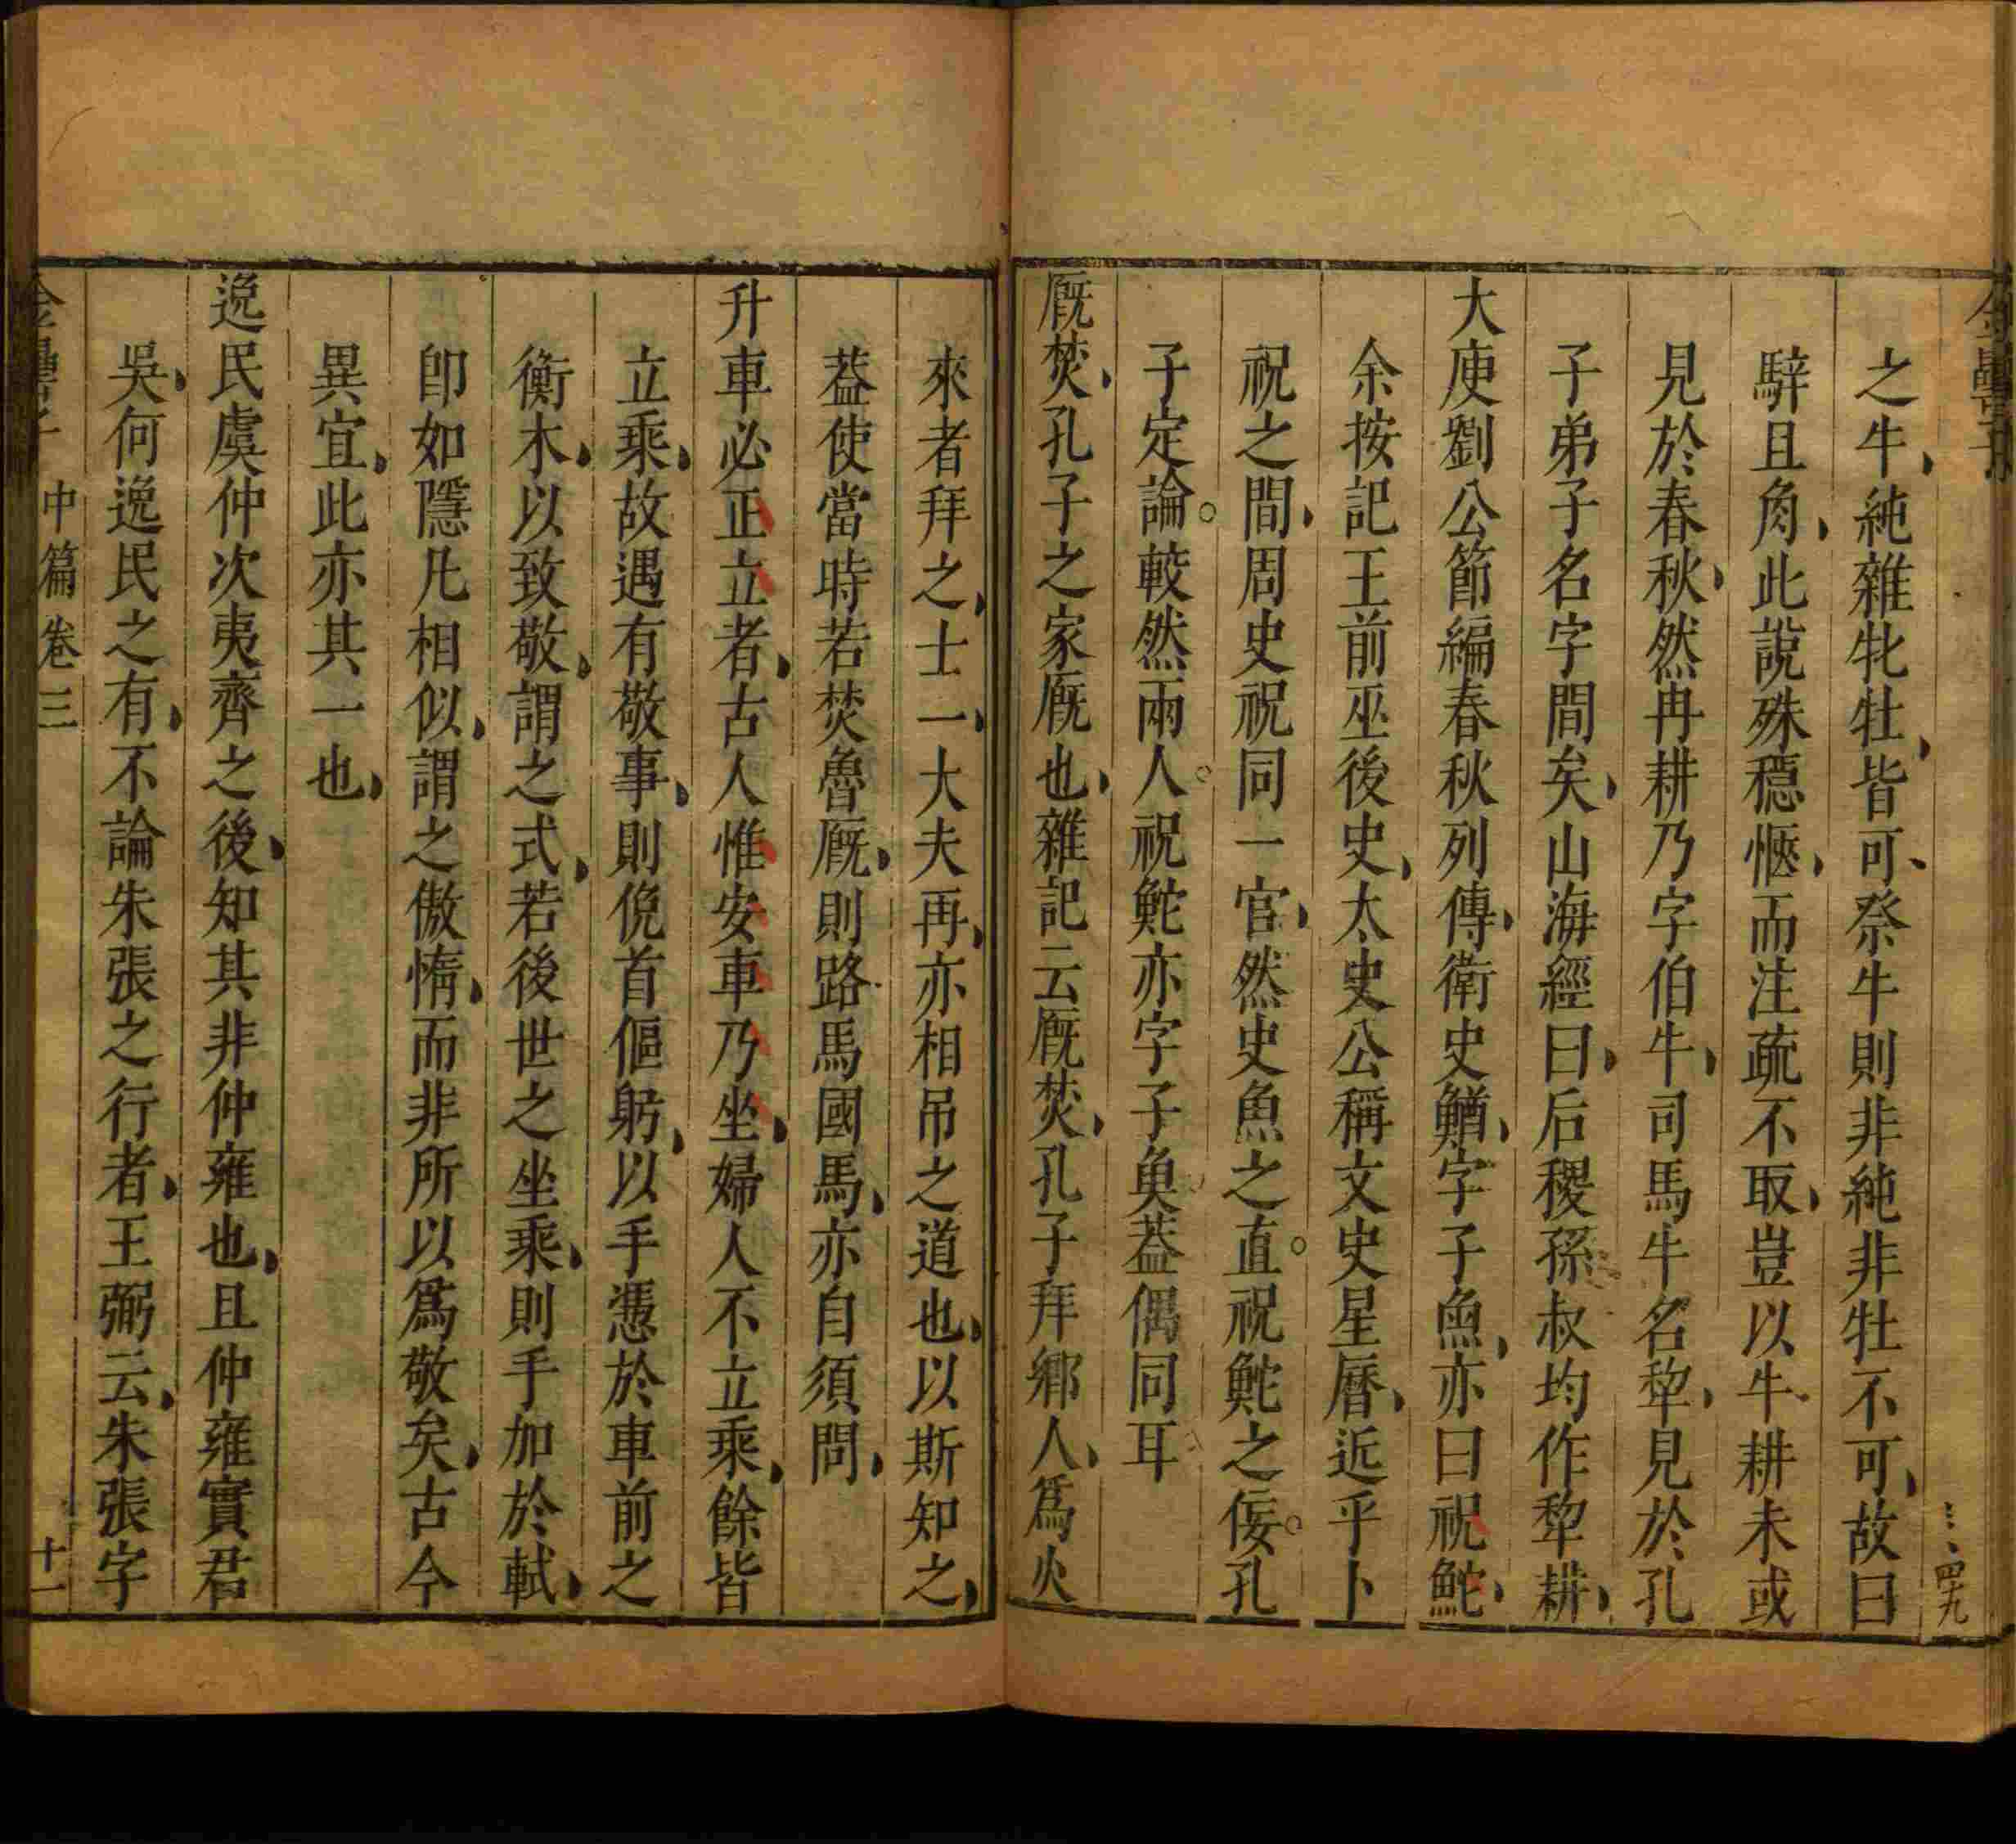 之牛純雜牝牡皆可祭牛則非純非牡不可故曰
騂且角此說殊穩愜而注疏不取豈以牛耕未或
見於春秋然冉耕乃字伯牛司馬牛名犂見於孔
子弟子名字間矣山海經曰后稷孫叔均作犂耕
大庾劉公節編春秋列傳衛史鰌字子魚亦曰祝鮀
余按記王前巫後史太史公稱文史星曆近乎卜
祝之間周史祝同一官然史魚之直祝鮀之佞孔
子定論較然兩人祝鮀亦字子魚蓋偶同耳
厩焚孔子之家厩也雜記云厩焚孔子拜鄉人爲火
來者拜之士一大夫再亦相吊之道也以斯知之
葢使當時若焚魯厩則路馬國馬亦自須問
升車必正立者古人惟安車乃坐婦人不立乘餘皆
立乘故遇有敬事則俛首傴躬以手憑於車前之
衡木以致敬謂之式若後世之坐乘則手加於軾
卽如隱几相似謂之傲惰而非所以爲敬矣古今
異宜此亦其一也
逸民虞仲次夷齊之後知其非仲雍也且仲雍實君
吳何逸民之有不論朱張之行者王弼云朱張字
中篇卷三
十一